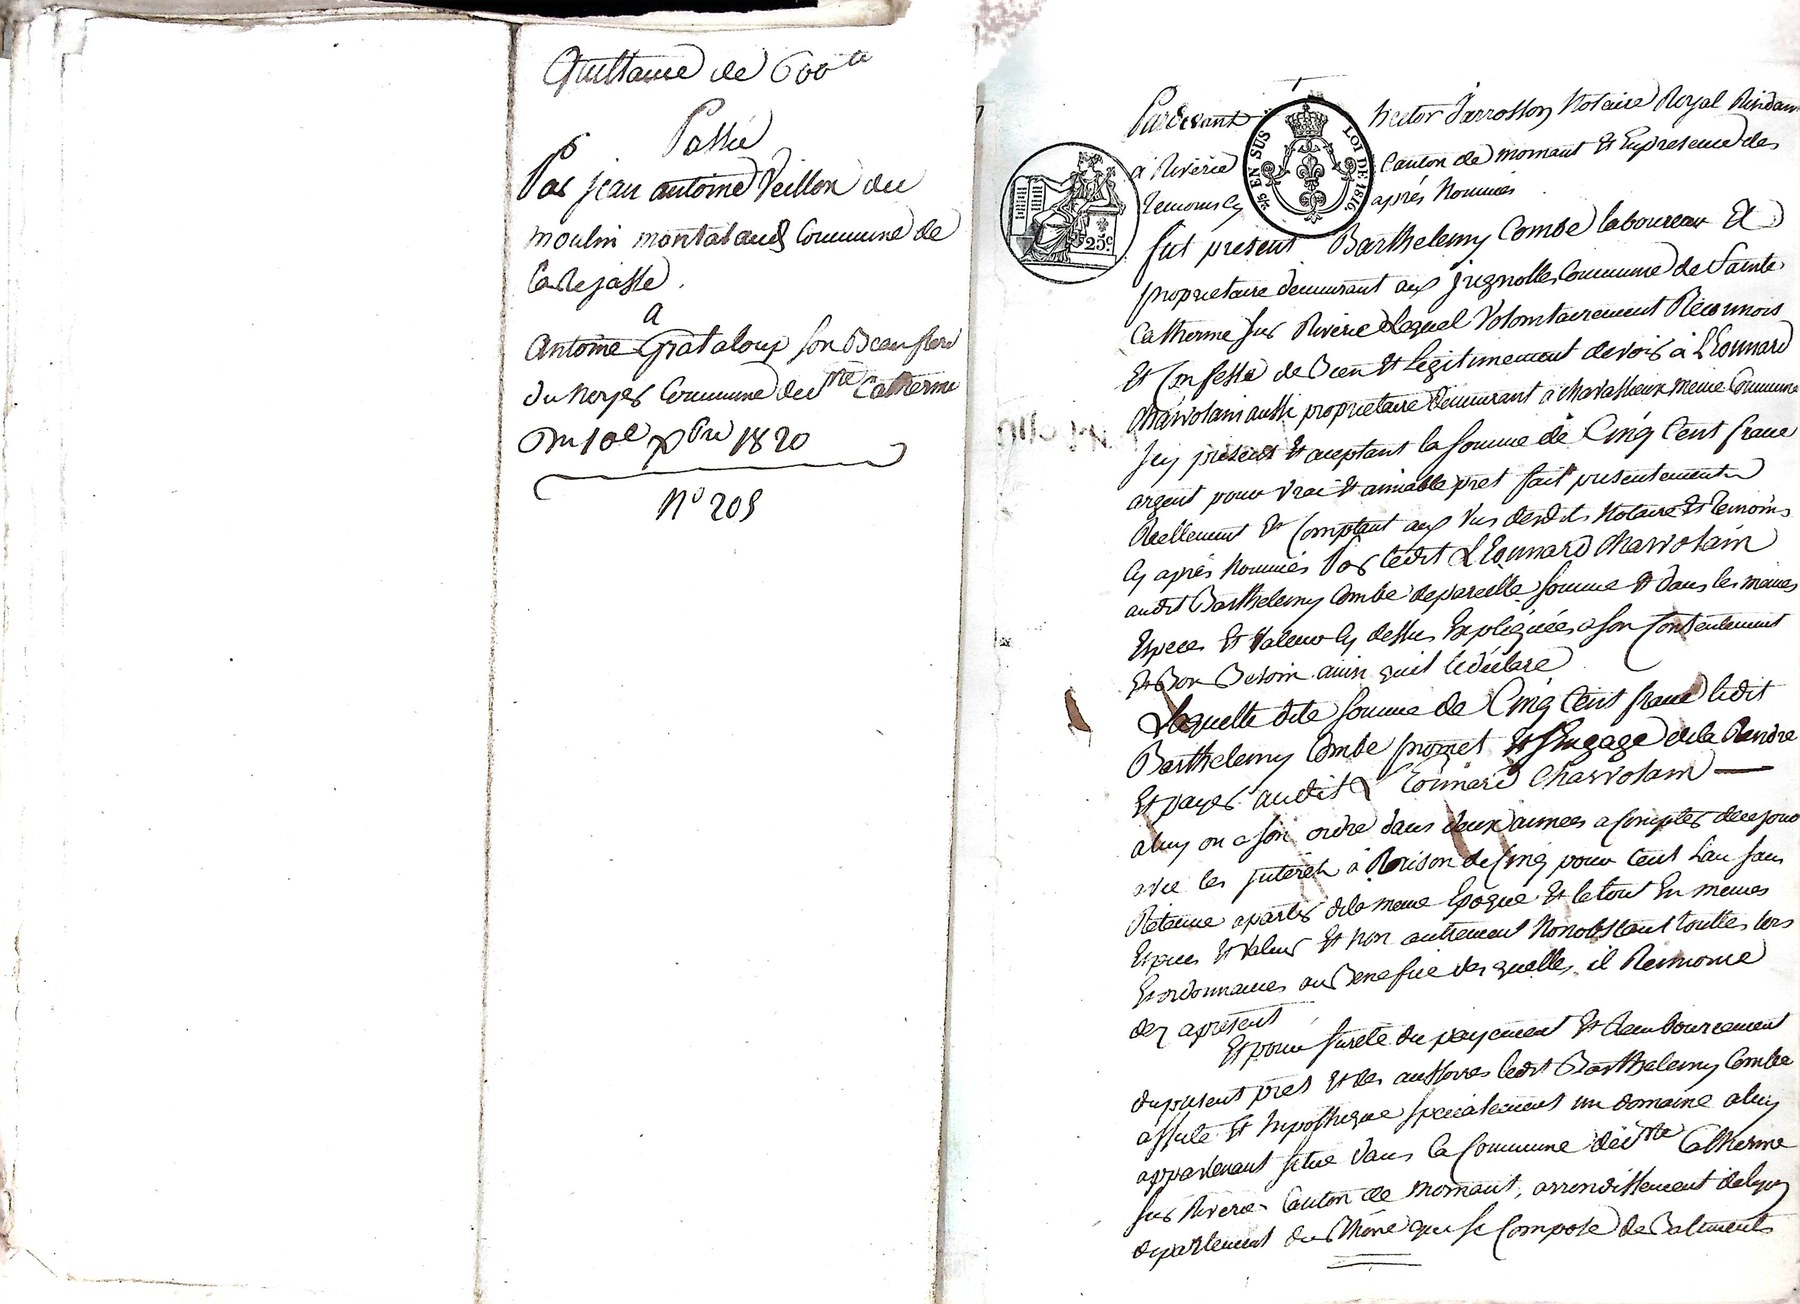 Quittance de 600 tt
Passé
Par jean antoine Veillon du
moulin montabaud Commune de
Larejasse.
a
Antoine Grataloup son Beau frere
du noyer Commune de Ste Catherine
Du 10e Xbre 1820
N° 205
Pardevant hector Jarrosson Notaire Royal Residant
a Riverie Canton de mornant Et En presence des
temoins Cy après Nommés
EN SUS LOI DE 1816
25c.
fut présent Barthelemy Combe laboureur Et
propriétaire demeurant aux jugnolles Commune de Sainte
Catherine sur Riverie lequel Volontairement Reconnois
Et Confesse de Bien Et Legitimement devoir à Léonnard
Charvolain aussi proprietaire demeurant a même Commune
Icy présent Et aceptant la somme de Cinq Cent franc
argent pour vrai Et amiable pret fait presentement
Reellement Et Comptant aux vus desdits Notaire Et temoins
Cy après Nommés Par ledit Léonnard Charvolain
audit Barthelemy Combe de pareille somme Et dans les mêmes
Especes Et Valeur Cy dessus Expliquées a son Contentement
Et Bon Besoin ainsi qu'il le déclare
Laquelle dite somme de Cinq Cent franc ledit
Barthelemy Combe promet Et s'engage de la Rendre
Et payer audit Léonnard Charvolain
a luy ou a son ordre dans deux années a Compter de ce jour
avec les Interêt à Raison de Cinq pour Cent L'an sans
Retenue a partir de la meme Epoque Et le tout En memes
Especes Et Valeur Et non autrement Nonobstant touttes lois
Et ordonnances au Benefice des quelles il Renonce
dez apresent
Et pour sureté du payement Et Rembourcement
du present pret Et des ledit Barthelemy Combe
affecte Et hipotheque specialement un domaine a luy
appartenant situé dans la Commune de Ste Catherine
sur Riverie Canton de mornant, arrondissement de Lyon
departement du Rhône qui se Compose de Batiments